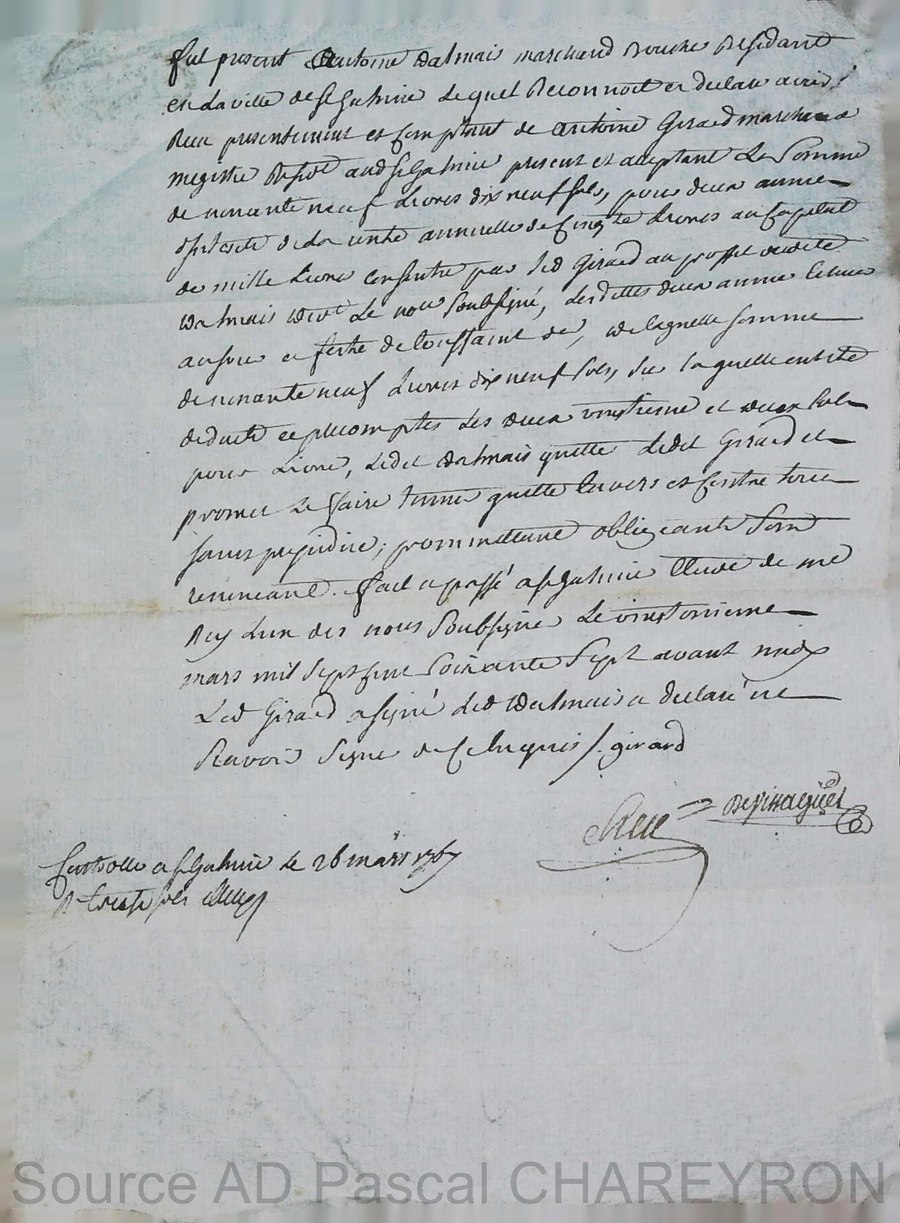 fut present Antoine Dalmais marchand Boucher Residant
en La ville de st Galmier Lequel Reconnoit et declare avoir
Receu presentement et comptant de antoine Girard marchand
megissier aud st Galmier present et aceptant La Somme
de nonante neuf Livres dix neuf sols, pour deux annee
de La rente annuelle de Cinq Livres au Capital
de mille Livre Consentie par led Girard au proffit dudit
Dalmais Le not Soubsigné, Lesdittes deux annee Echue
au jour et feste de toussaint de, de laquelle somme
de nonante neuf Livres dix neuf sols, sur laquelle ont été
deduit et precomptes Les deux vingtieme et deux sols
pour Livre, Ledit Dalmais quitte Ledit Girard et
promet Le faire tenir quitte Envers et Contre tous
sans prejudice, promettant obligeant Soum
renoncant. fait et passé a st Galmier Etude de me
Rey L'un des not Soubsigné Le vingtonzieme
mars mil sept cent soixante Sept avant midy
Led Girard a signé Led Dalmais a declaré ne
Scavoir Signer de Ce Enquis /. girard
Controlle a st Galmier le 26 mars 1767
R sols
Source AD Pascal CHAREYRON